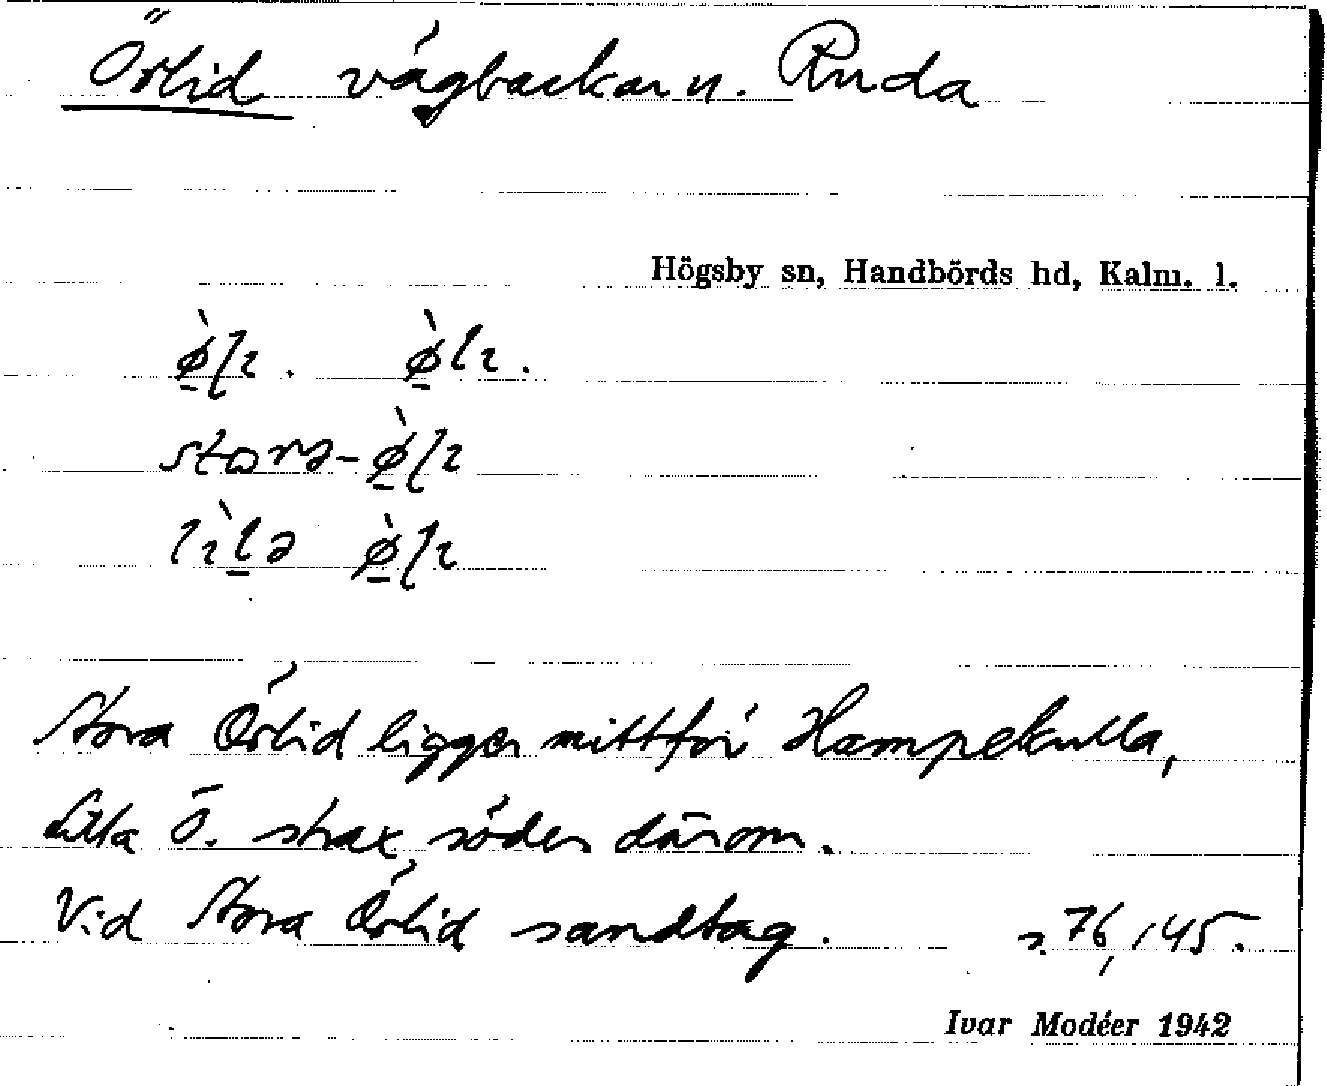 Örlid vägbackar u. Ruda
Högsby sn, Handbörds hd, Kalm. l.
Stora Örlid ligger mittför Hampekulla,
Lilla Ö. strax söder därom.
Vid Stora Örlid sandtag. s. 76, 145.
Ivar Modéer 1942